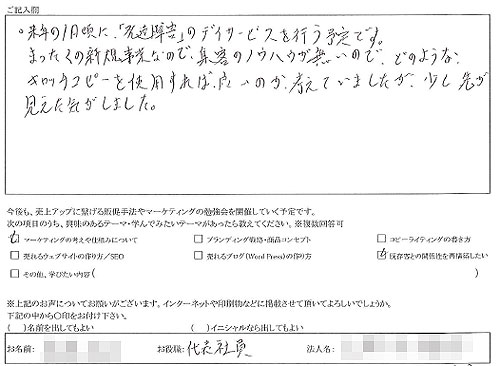 ご記入欄
。来年の1月頃に、「発達障害」のデイサービスを行う予定です。
まったくの新規事業なので、集客のノウハウが無いので、どのような、
キャッチコピーを使用すれば、良いのか、考えていましたが、少し先が
見えた気がしました。
今後も、売上アップに繋げる販促手法やマーケティングの勉強会を開催していく予定です。
次の項目のうち、興味のあるテーマ・学んでみたいテーマがあったら教えてください。※複数回答可
マーケティングの考えや仕組みについて □ブランディング戦略・商品コンセプト □コピーライティングの書き方
□売れるウェブサイトの作り方／SEO □売れるブログ(Word Press)の作り方 既存客との関係性を再構築したい
□その他、学びたい内容( )
※上記のお声についてお願いがございます。インターネットや印刷物などに掲載させて頂いてよろしいでしょうか。
下記の中から〇印をお付け下さい。
( )名前を出してもよい ( )イニシャルなら出してもよい
お名前: お役職: 代表社員 法人名: